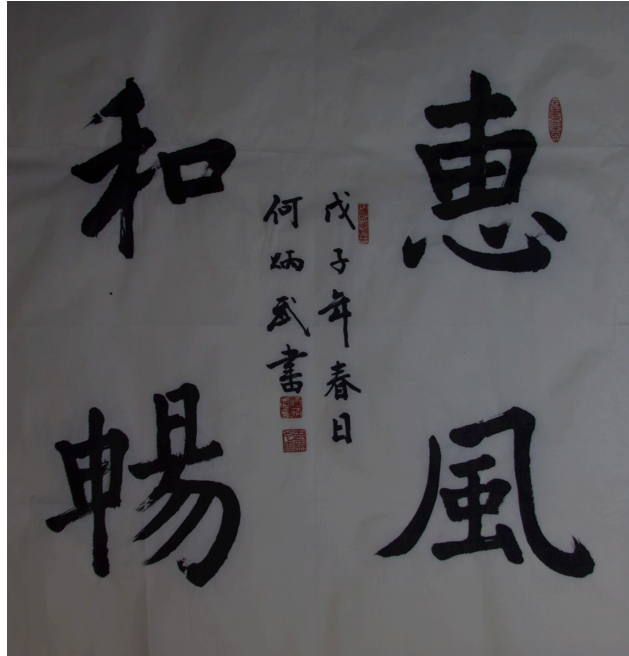 惠風
和暢
戊子年春日
何炳武書